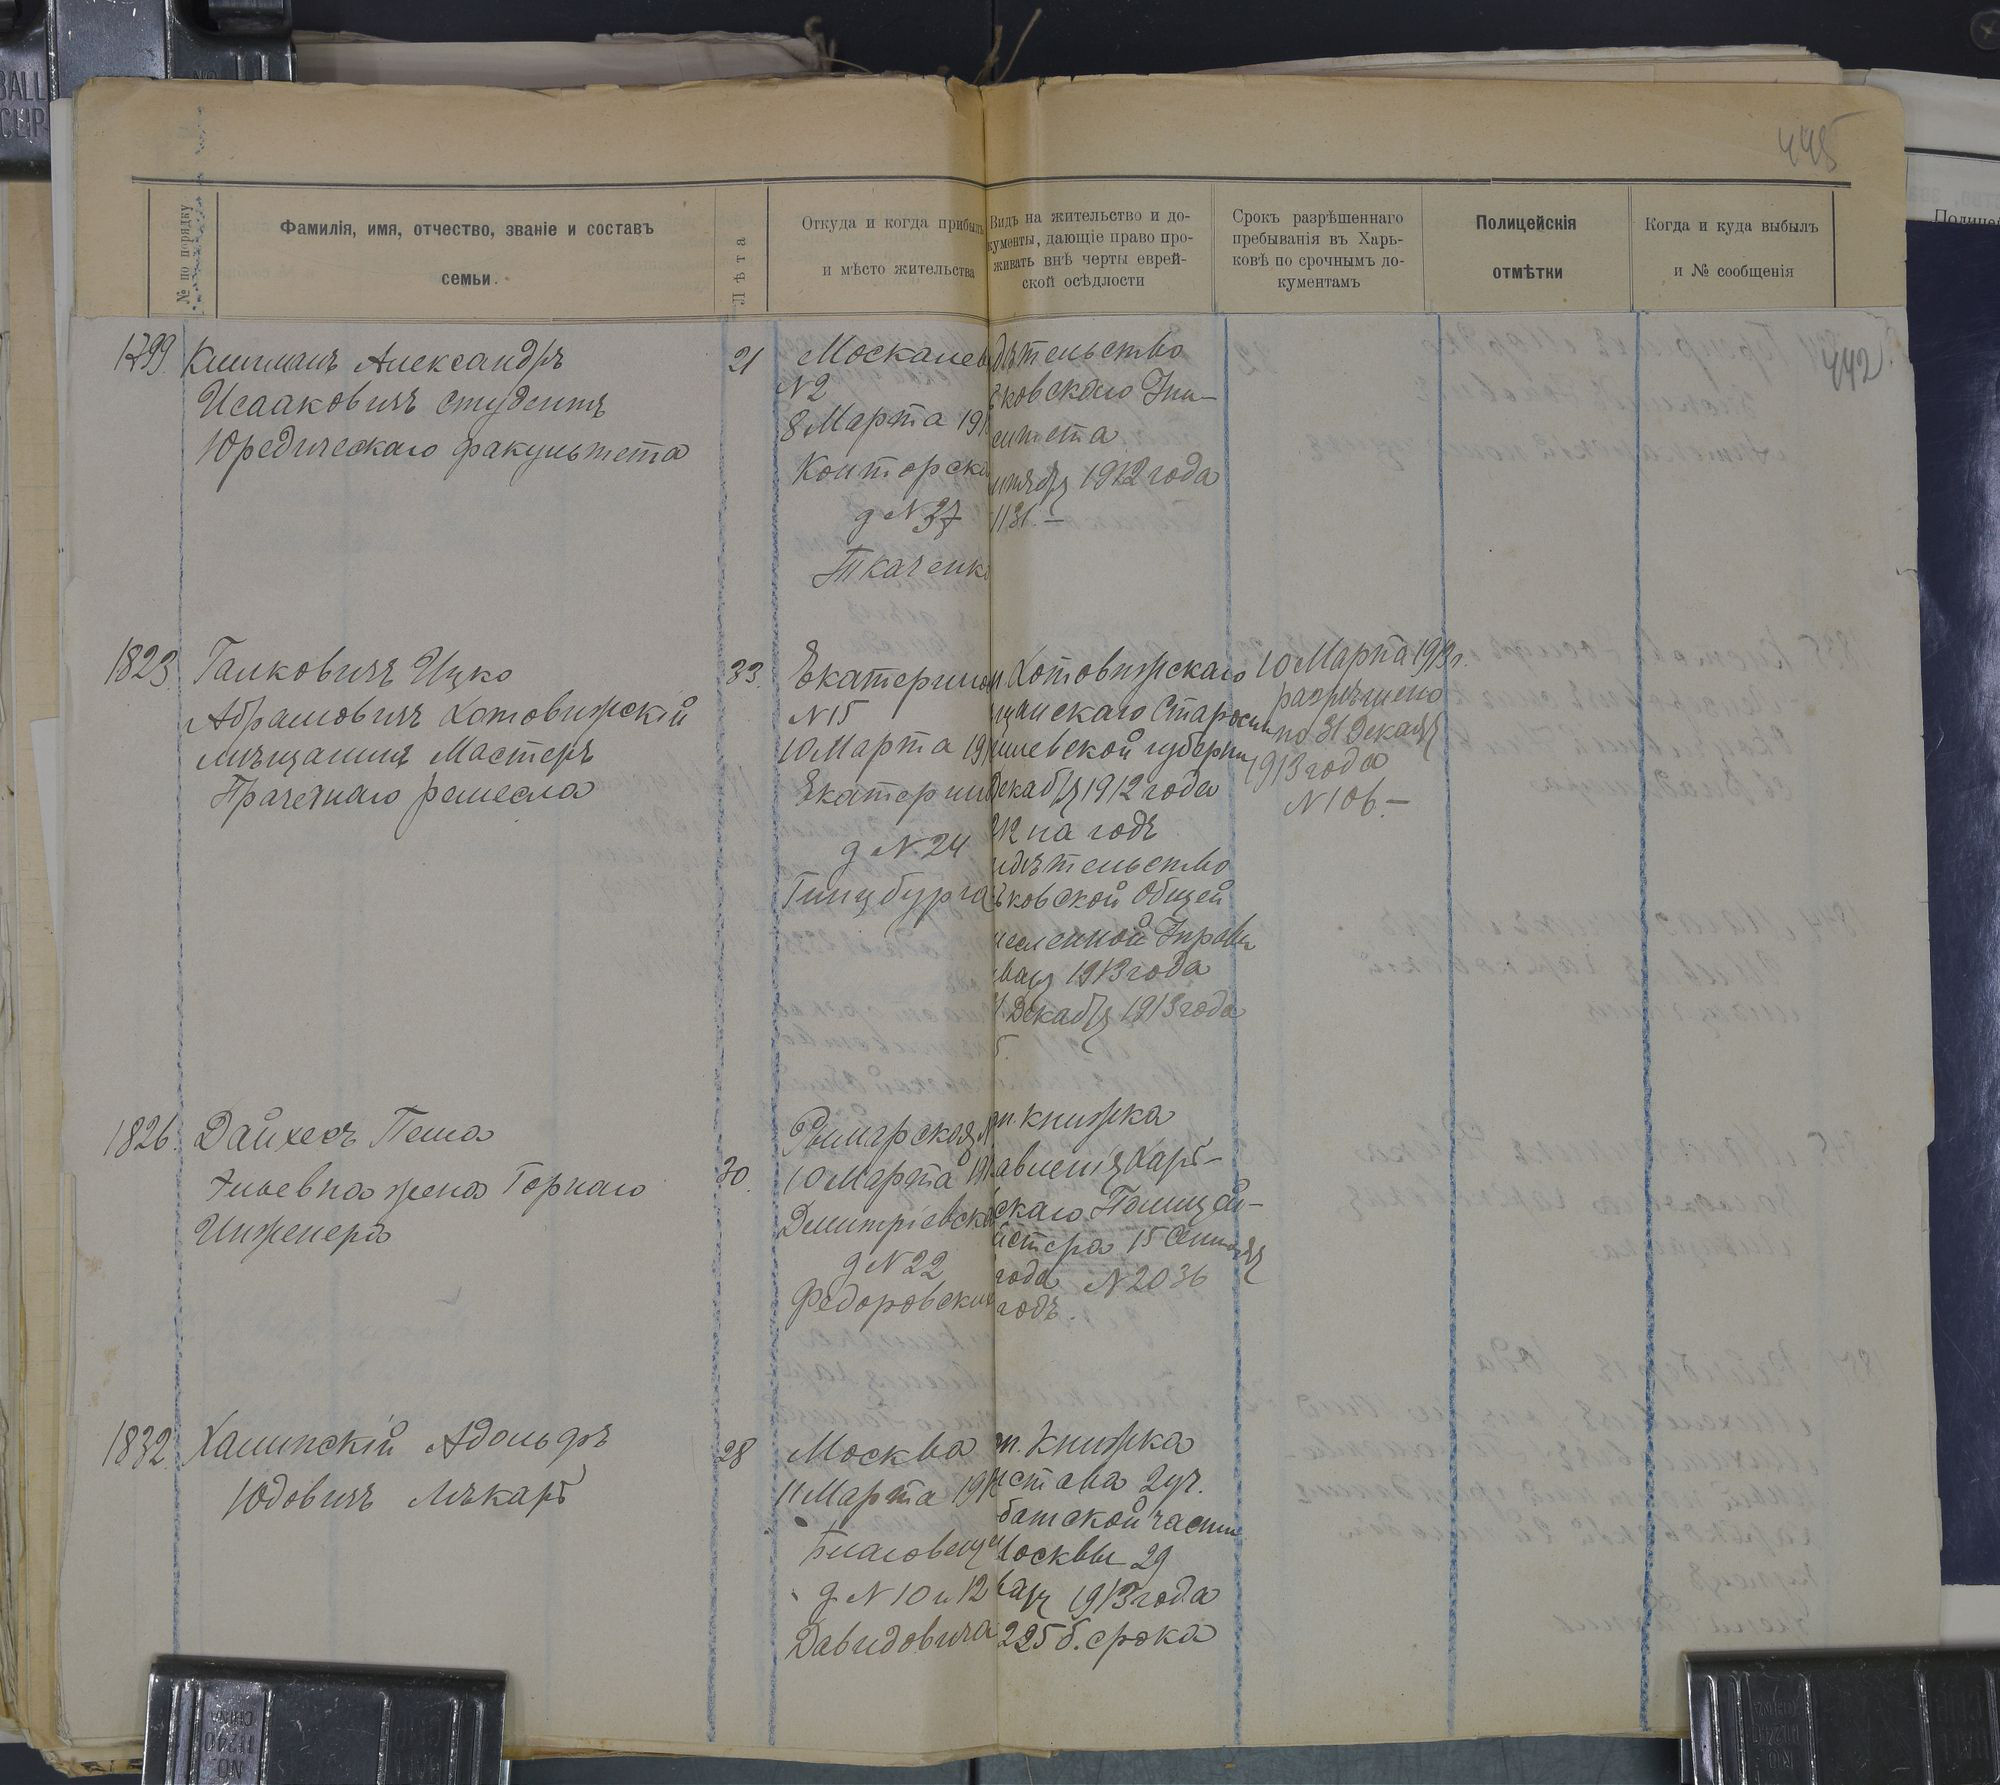 445
№ по порядку
Фамилія, имя, отчество, званіе и составъ
семьи.
Лѣта
Откуда и когда прибылъ
и мѣсто жительства
Видъ на жительство и до-
кументы, дающіе право про-
живать внѣ черты еврей-
ской осѣдлости
Срокъ разрѣшеннаго
пребыванія въ Харь-
ковѣ по срочнымъ до-
кументамъ
Полицейскія
отмѣтки
Когда и куда выбылъ
и № сообщенія
442
1799.
Александръ
Исааковичъ студентъ
Юредическаго факультета
21
Москалев
N2
8 Марта 191
Конторска
д N 37
Ткаченко
дѣтельство
ковскаго Уни-
ситета
нтября 1912 года
1131.–
1823.
Галковичъ Ицко
Абрамовичъ Хотовижскій
мѣщанинъ Мастеръ
Прачешнаго ремесла
33.
Екатерино
N15
10 Марта 191
Екатерин
д N 24
Гинцбурга
Хотовижскаго
щанскаго Старосты
илевской губерніи
Декабря 1912 года
212 на годъ
идѣтельство
ьковской Общей
месленной Управы
варя 1913 года
Декабря 1913 года
10 Марта 1913 г.
разрѣшено
по 31 Декабря
1913 года
N 106.–
1826.
Дайхесъ Песа
Эльевна жена Горнаго
Инженера
30.
Рымарская N
10 Марта 191
Дмитріевска
д N 22
Федоровски
п. книжка
авленія Харь-
скаго Полицей-
йстера 15 Сентября
года N 2036
годъ.
1832.
Адольфъ
Юдовичъ Лѣкарь
28
Москва
11 Марта 191
Благовеще
д N 10 и 12
Давидовича
п. книжка
истава 2 уч.
батской части
Москвы 29
варя 1913 года
225 б. срока